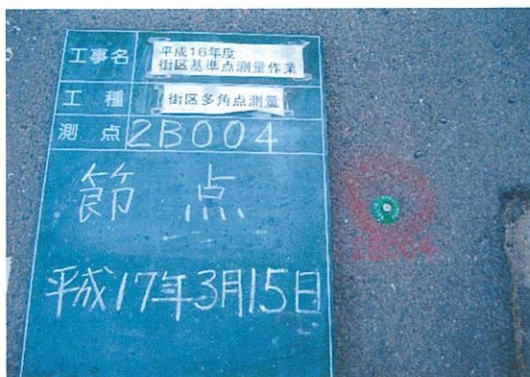 工事名
平成16年度
街区基準点測量作業
工種
街区多角点測量
測点 2B004
節点
平成17年3月15日
2B004